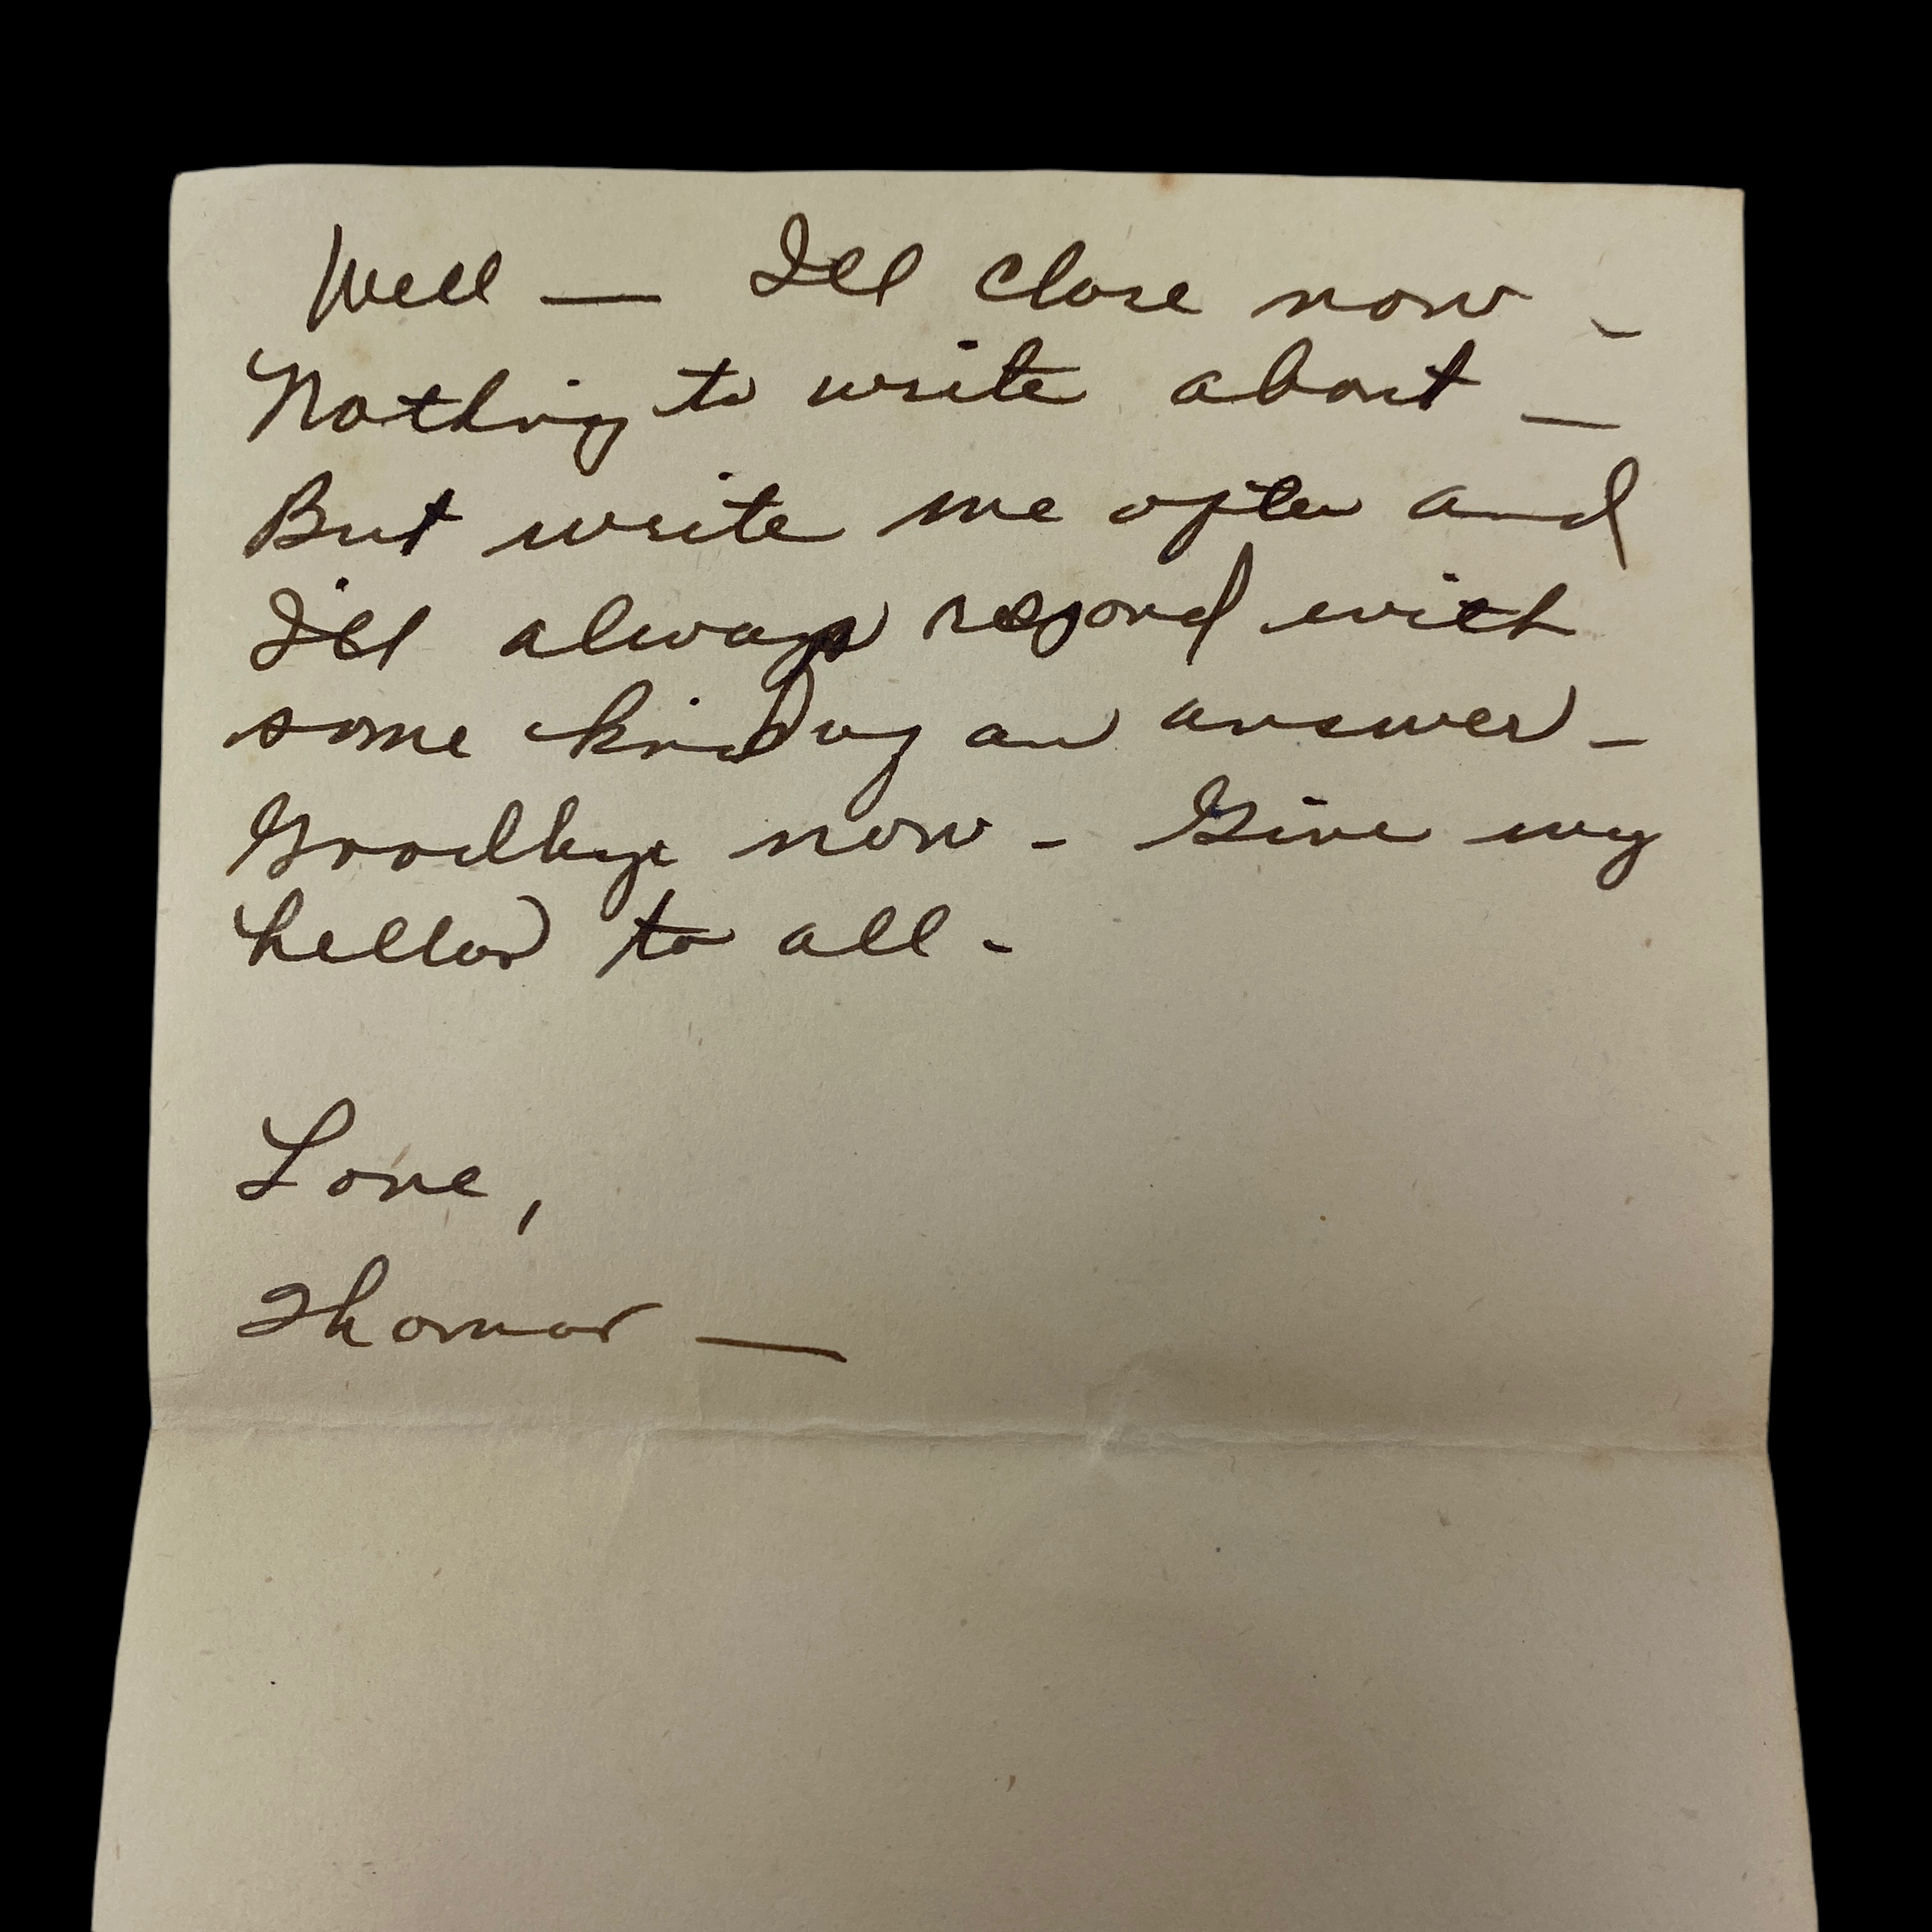 Well — I'll close now -
Nothing to write about —
But write me often and
I'll always respond with
some kind of an answer -
Goodbye now - Give my
hello to all -
Love,
Thomas —